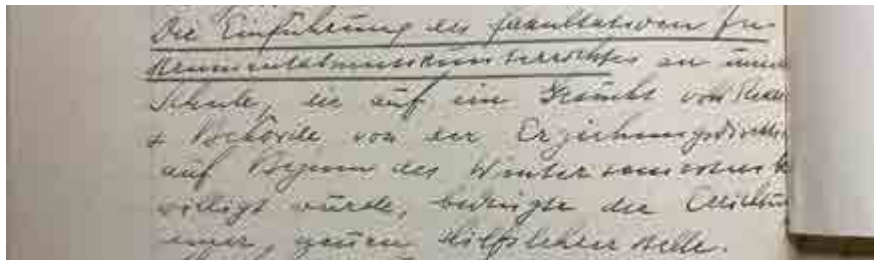 Die Einführung des fakultativen In-
strumentalmusikunterrichtes an unserer
Schule, die auf ein Gesuch von Rektor
+ Behörde von der Erziehungsdirektion
auf Beginn des Wintersemesters be-
willigt wurde, bedingte die
einer Hilfslehrerstelle.